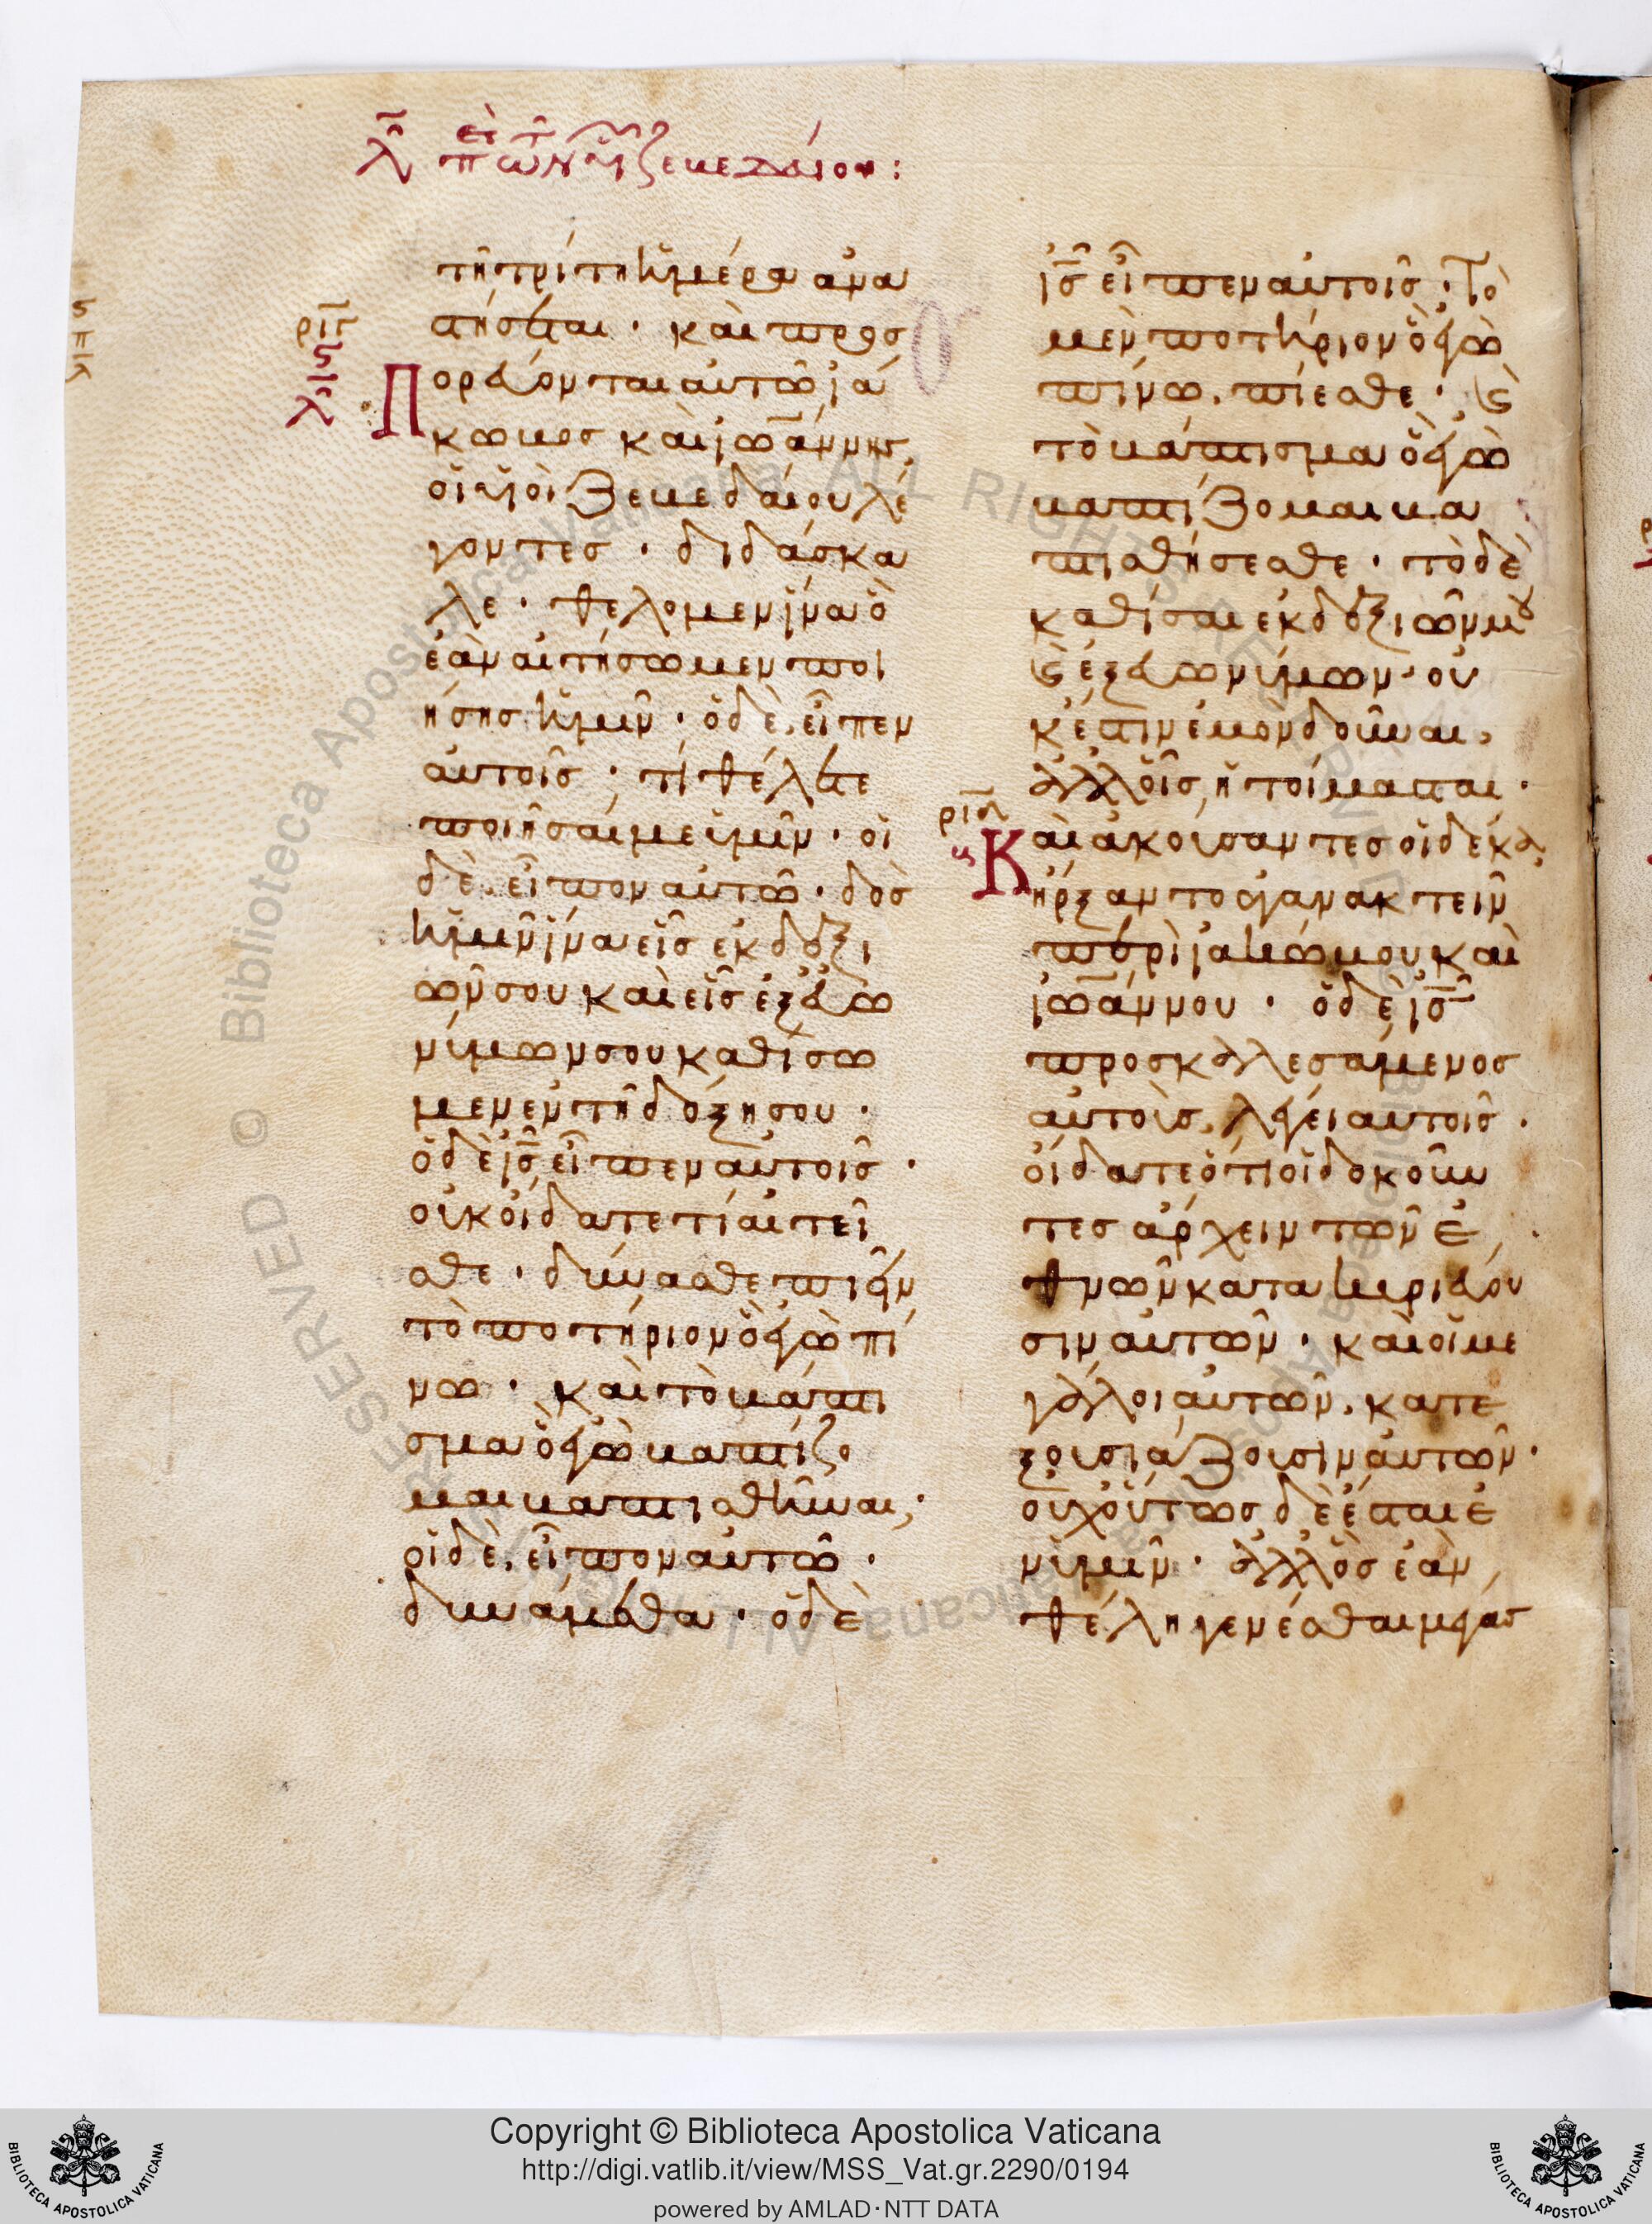 λ̅ περὶ τῶν υἱῶν Ζεβεδαίου:
τῆ τρίτη ἡμέρα ἀνα
στήσεται · καὶ προσ
Πορεύονται αὐτῶ ἰά
κωβος καὶ ἰωάννης,
οἱ υἱοὶ Ζεβεδαίου λέ
γοντες · διδάσκα
λε · θέλομεν ἵνα ὃ
ἐὰν αἰτήσωμεν ποι
ήσης ἡμῖν · ὁ δὲ, εἶπεν
αὐτοῖς · τί θέλετε
ποιῆσαί με ὑμῖν · οἱ
δὲ εἶπον αὐτῶ · δὸσ
ἡμῖν ἵνα εἷς ἐκ δεξι
ῶν σου καὶ εἷς ἐξ εὐω
νύμων σου καθίσω
μεν ἐν τῆ δόξη σου ·
ὁ δὲ ἰ̅ς̅ εἶπεν αὐτοῖς ·
οὐκ οἴδατε τί αἰτεῖ
σθε · δύνασθε πιεῖν
τὸ ποτήριον ὃ ἐγὼ πί
νω · καὶ τὸ βάπτι
σμα ὃ ἐγὼ βαπτίζο
μαι βαπτισθῆναι;
οἱ δὲ, εἶπον αὐτῶ ·
δυνάμεθα · ὁ δὲ
ριγ
ς
λ
ἰ̅ς̅ εἶπεν αὐτοῖς · Τὸ
μὲν ποτήριον ὃ ἐγὼ
πίνω, πίεσθε · ϗ
τὸ βάπτισμα ὃ ἐγὼ
βαπτίζομαι βα
πτισθήσεσθε · τὸ δὲ
καθίσαι ἐκ δεξιῶν μου
ϗ ἐξ εὐωνύμων · οὐ
κ ἔστιν ἐμὸν δοῦναι,
ἀλλ' οἷς ἡτοίμασται ·
ριδ
Καὶ ἀκούσαντες οἱ δέκα
ἤρξαντο ἀγανακτεῖν
περὶ ἰακώβου καὶ
ἰωάννου · ὁ δὲ ἰ̅ς̅
προσκαλεσάμενος
αὐτοὺς, λέγει αὐτοῖς ·
οἴδατε ὅτι οἱ δοκοῦν
τες ἄρχειν τῶν ἐ
θνῶν κατακυριεύου
σιν αὐτῶν · καὶ οἱ με
γάλοι αὐτῶν, κατε
ξουσιάζουσιν αὐτῶν ·
οὐχ οὕτως δὲ ἔσται ἐ
ν ὑμῖν · ἀλλ' ὃς ἐὰν
θέλη γενέσθαι μέγας
Copyright © Biblioteca Apostolica Vaticana
http://digi.vatlib.it/view/MSS_Vat.gr.2290/0194
powered by AMLAD·NTT DATA
BIBLIOTECA APOSTOLICA VATICANA
BIBLIOTECA APOSTOLICA VATICANA